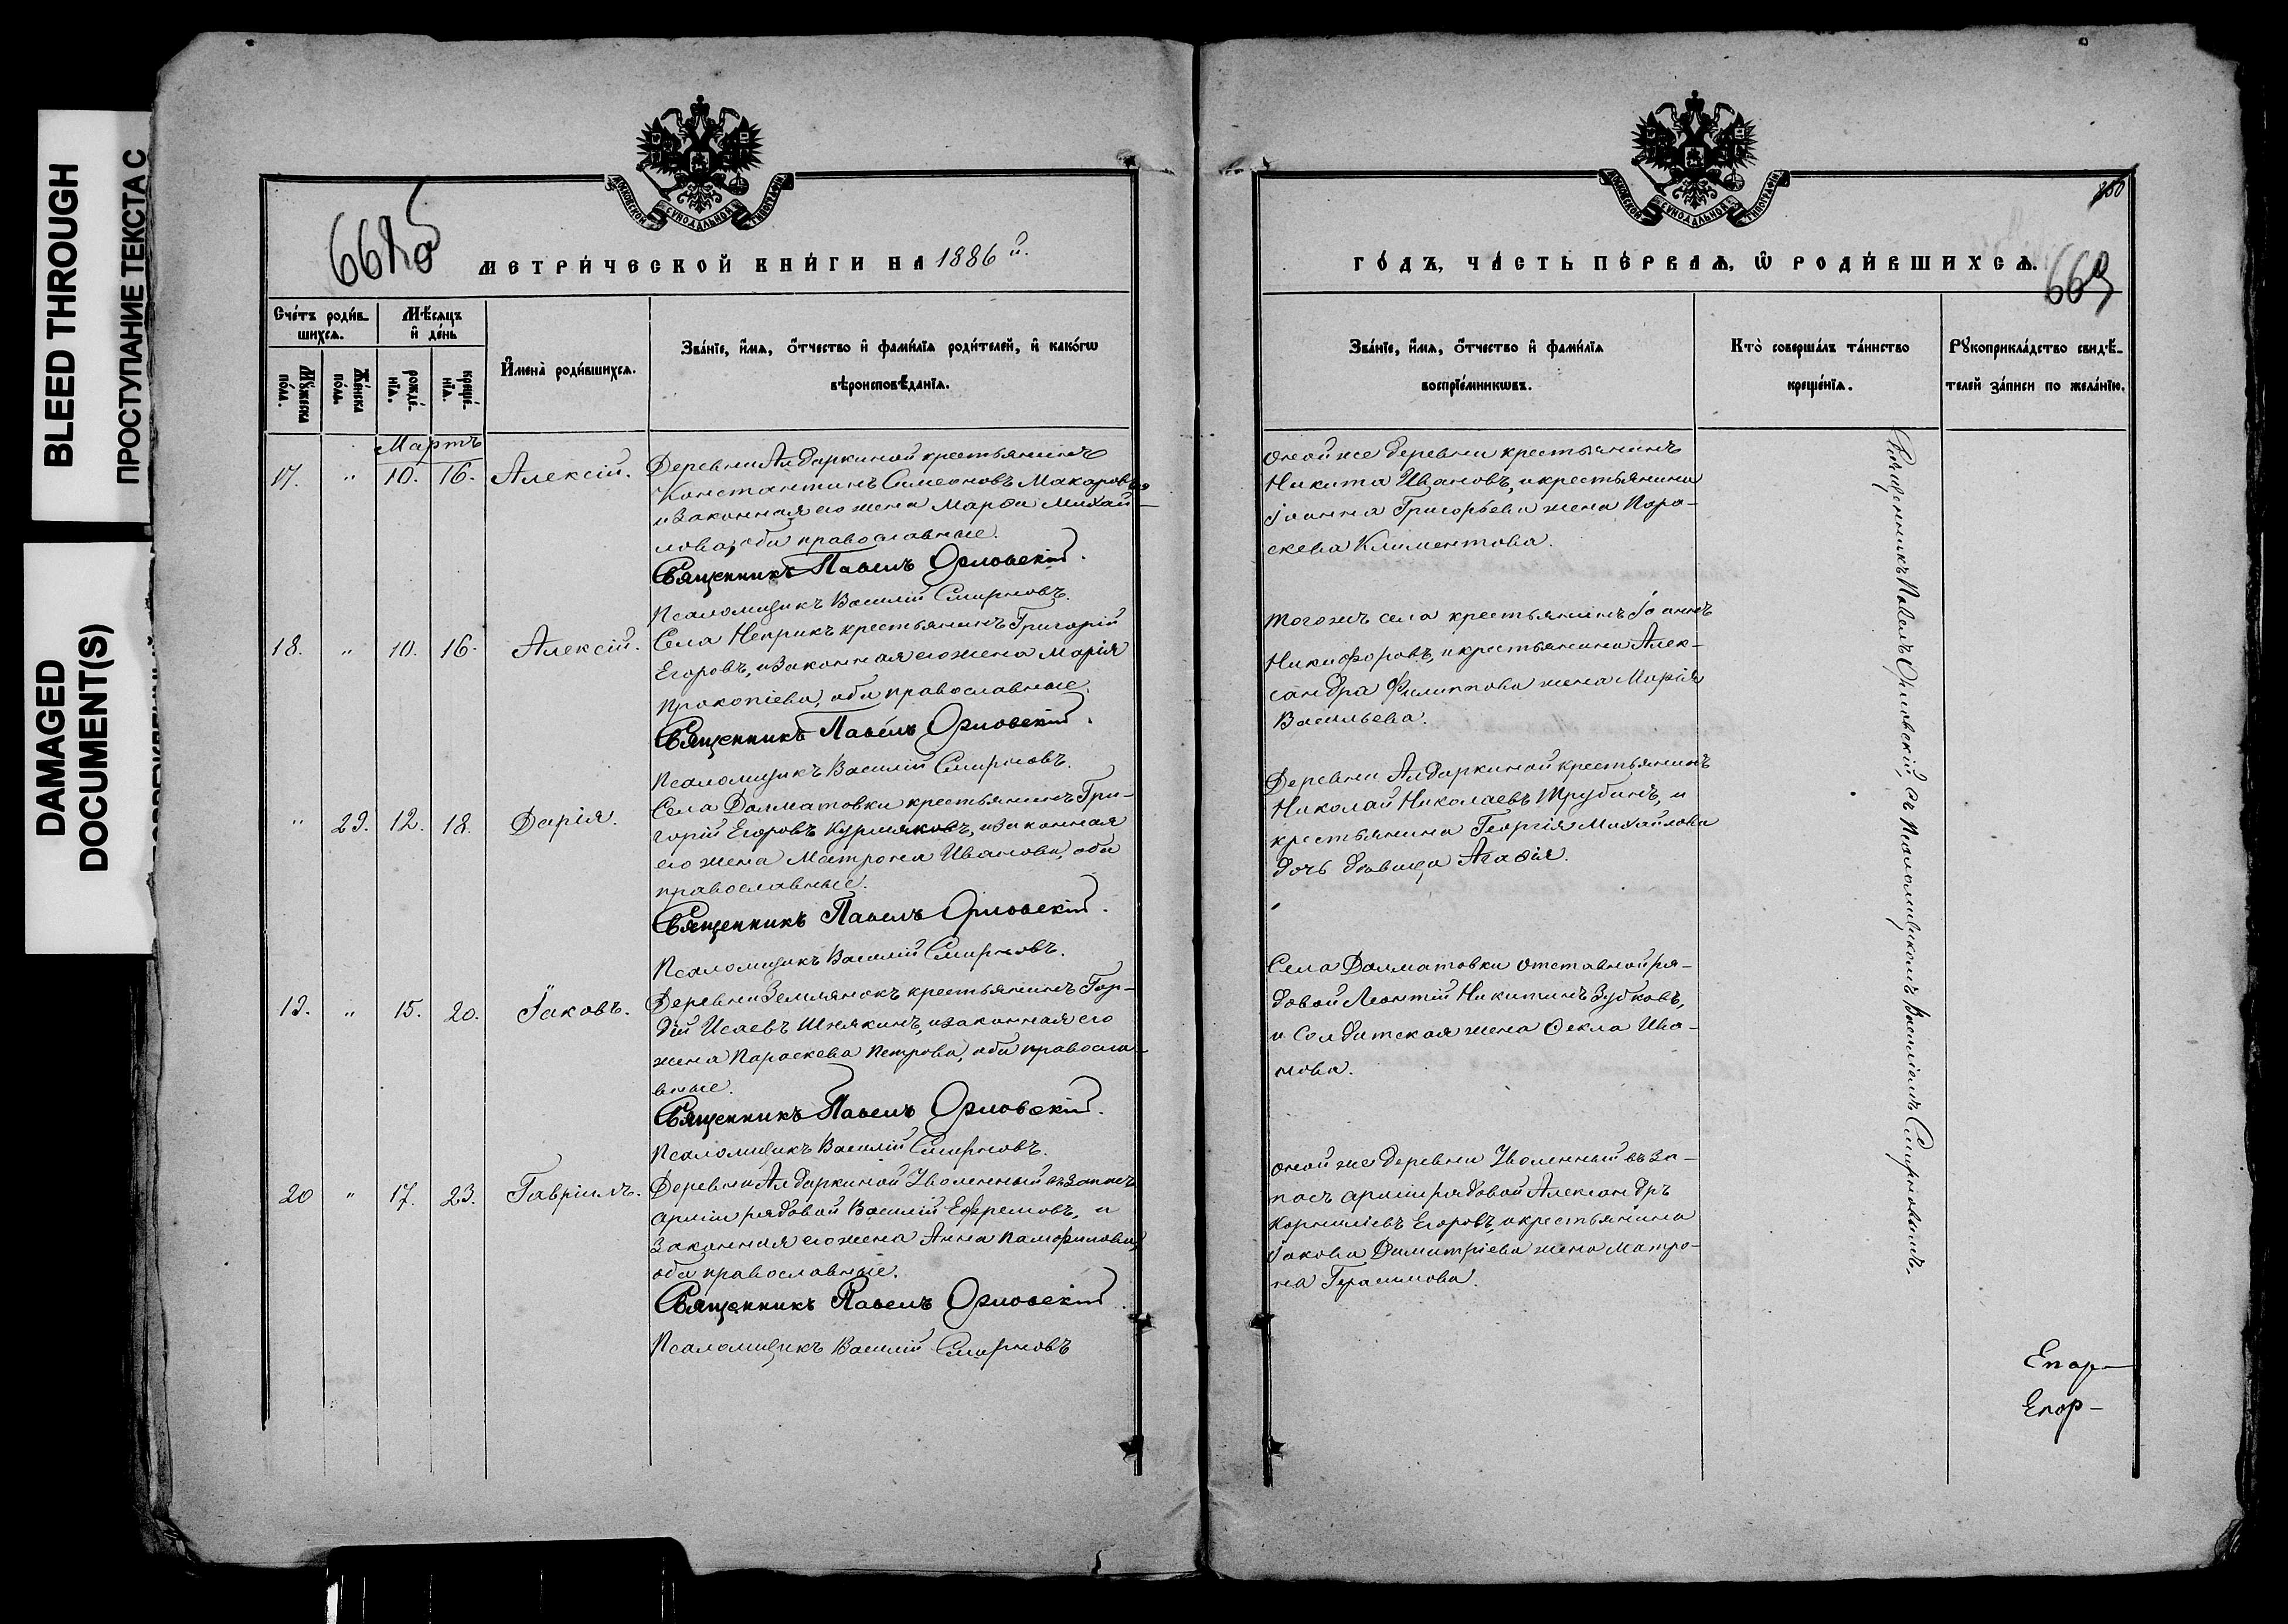 BLEED THROUGH
ПРОСТУПАНИЕ ТЕКСТА С
DAMAGED
DOCUMENT(S)
МОСКОВСКОЙ СѴНОДАЛЬНОЙ ТИПОГРАФІИ
МЕТРИ́ЧЕСКОЙ КНИ́ГИ НА 1886й.
Сче́тъ роди́в-
шихсѧ.
Мѣ́сѧцъ
и҆ де́нь
Му́жеска
по́ла.
Же́нска
по́ла.
рожде́-
нїѧ.
креще́-
нїѧ.
И҆мена̀ роди́вшихсѧ.
Зва́нїе, и҆́мѧ, о҆́тчество и҆ фами́лїѧ роди́телей, и҆ како́гѡ
вѣроисповѣ́данїѧ.
Мартъ
17. " 10. 16. Алексій.
Деревни Алдаркиной крестьянинъ
Константинъ Симеоновъ Макаровъ,
и законная его жена Марѳа Михай-
лова, оба православные.
Священникъ Павелъ Орловскій.
Псаломщикъ Василій Смирновъ.
18. " 10. 16. Алексій.
Села Неприкъ крестьянинъ Григорій
Егоровъ, и законная его жена Марія
Прокопіева, оба православные.
Священникъ Павелъ Орловскій.
Псаломщикъ Василій Смирновъ.
" 29. 12. 18. Дарія.
Села Долматовки крестьянинъ Гри-
горій Егоровъ Курмяковъ, и законная
его жена Матрона Иванова, оба
православные.
Священникъ Павелъ Орловскій.
Псаломщикъ Василій Смирновъ.
19. " 15. 20. Іаковъ.
Деревни Землянокъ крестьянинъ Гор-
дій Исаевъ Шнякинъ, и законная его
жена Параскева Петрова, оба правосла-
вные.
Священникъ Павелъ Орловскій.
Псаломщикъ Василій Смирновъ.
20 " 17. 23. Гавріилъ.
Деревни Алдаркиной Уволенный въ запасъ
арміи рядовой Василій Ефремовъ, и
законная его жена Анна Памфилова,
оба православные.
Священникъ Павелъ Орловскій.
Псаломщикъ Василій Смирновъ
МОСКОВСКОЙ СѴНОДАЛЬНОЙ ТИПОГРАФІИ
669
ГО́ДЪ, ЧА́СТЬ ПЕ́РВАѦ, Ѡ҆ РОДИ́ВШИХСѦ.
Зва́нїе, и҆́мѧ, о҆́тчество и҆ фами́лїѧ
воспрїе́мникѡвъ.
Кто̀ соверша́лъ та́инство
креще́нїѧ.
Рꙋкоприкла́дство свидѣ́-
телей за́писи по жела́нїю.
оной же деревни крестьянинъ
Никита Ивановъ, и крестьянина
Іоанна Григорьева жена Пара-
скева Климентова.
того жъ села крестьянинъ Іоаннъ
Никифоровъ, и крестьянина Алек-
сандра Филиппова жена Марія
Васильева.
Деревни Алдаркиной крестьянинъ
Николай Николаевъ Трубинъ, и
крестьянина Георгія Михайлова
дочь дѣвица Агаѳія.
Села Долматовки отставной ря-
довой Леонтій Никитинъ Зубковъ,
и Солдатская жена Ѳекла Ива-
нова.
оной же деревни Уволенный въ за-
пасъ арміи рядовой Александръ
Корниліевъ Егоровъ, и крестьянина
Іакова Димитріева жена Матро-
на Герасимова.
Священникъ Павелъ Орловскій, съ Псаломщикомъ Василіемъ Смирновымъ.
Епар-
Епар-